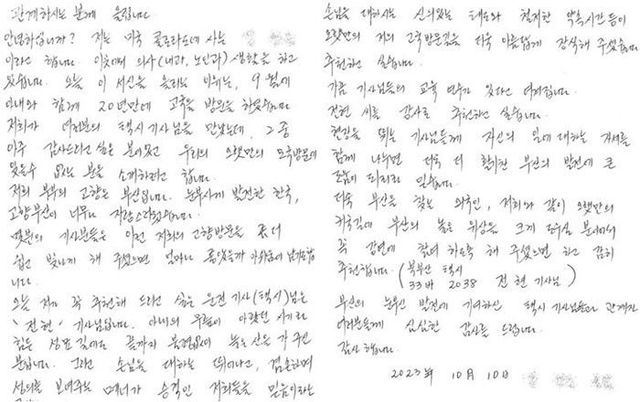 관계하시는 분께 올립니다.
안녕하십니까? 저는 미국 콜로라도에 사는
이라고 합니다. 이곳에서 의사(내과, 노인과) 생활을 하고
있습니다. 오늘 이 서신을 올리는 이유는, 9월에
아내와 함께 20년만에 고국을 방문을 하였습니다.
저희가 여러분의 택시 기사님을 만났는데, 그 중
아주 감사드리고 싶은 분이 있고 우리의 오랫만의 모국방문에
잊을수 없는 분을 소개하려고 합니다.
저희 부부의 고향은 부산입니다. 눈부시게 발전한 한국,
고향부산이 너무나 자랑스러웠습니다.
몇분의 기사분들은 이런 저희의 고향방문을 좀 더
쉽고 빛나게 해 주셨으면 얼마나 좋았을까 아쉬움이 남기도합
니다.
오늘 제가 꼭 추천해 드리고 싶은 운전기사(택시)님은
"전현" 기사님입니다. 아내의 부모님이 아랫던 시기라
힘든 성묘 길에도 끝까지 도움없이 녹녹치 않은 가 주신
분입니다. 그리고 손님을 대하는 뛰어나고, 겸손하며
성의를 보여주는 매너가 승객인 저희들을 믿음이라는
손님을 대하시는 신의있는 태도와 철저한 약속시간 등이
오랫만의 저희 고국방문길을 더욱 아름답게 장식해 주셨습니다.
추천하고 싶습니다.
가끔 기사님들의 교육 연수가 있다고 여겨집니다.
전현 씨를 강사로 추천하고 싶습니다.
현장을 뛰는 기사님들께 자신의 일에 대하는 자세를
함께 나누면 더욱 더 활기찬 부산의 발전에 큰
도움이 되리라 믿습니다.
더욱 부산을 찾는 외국인, 저희와 같이 오랫만의
귀국길에 부산의 높은 위상을 크게 높여실 분이셔서
꼭 강연에 참여 하도록 해 주셨으면 하고 감히
추천합니다. (북부산 택시
33바 2038 전현 기사님)
부산의 눈부신 발전에 기여하신 택시 기사님들과 관계자
여러분들께 심심한 감사를 드립니다.
감사합니다.
2023年 10月 10日